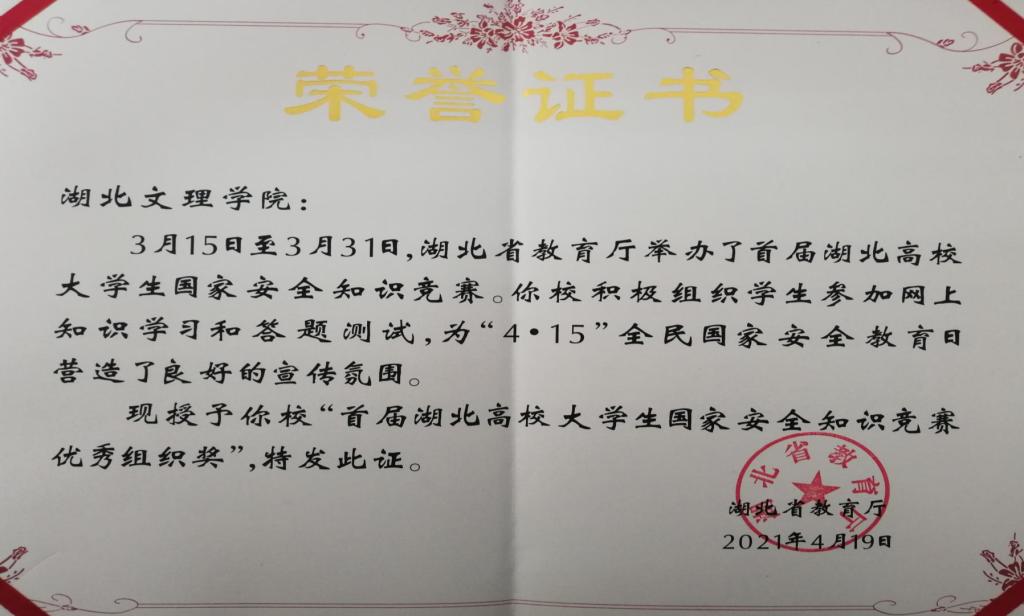 荣誉证书
湖北文理学院：
3月15日至3月31日，湖北省教育厅举办了首届湖北高校
大学生国家安全知识竞赛。你校积极组织学生参加网上
知识学习和答题测试，为“4·15”全民国家安全教育日
营造了良好的宣传氛围。
现授予你校“首届湖北高校大学生国家安全知识竞赛
优秀组织奖”，特发此证。
湖北省教育厅
湖北省教育厅
2021年4月19日